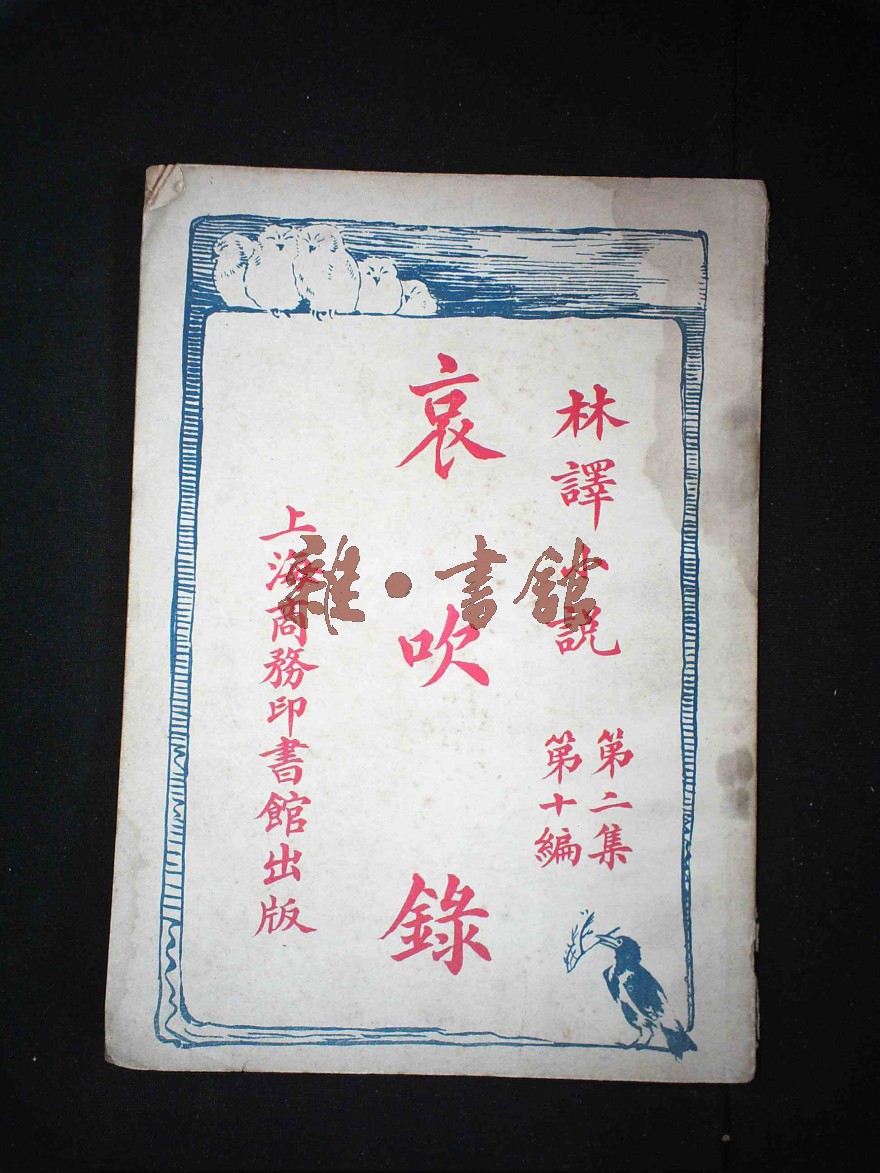 林譯小説
第二集
第十編
哀吹錄
上海商務印書館出版
雜·書館